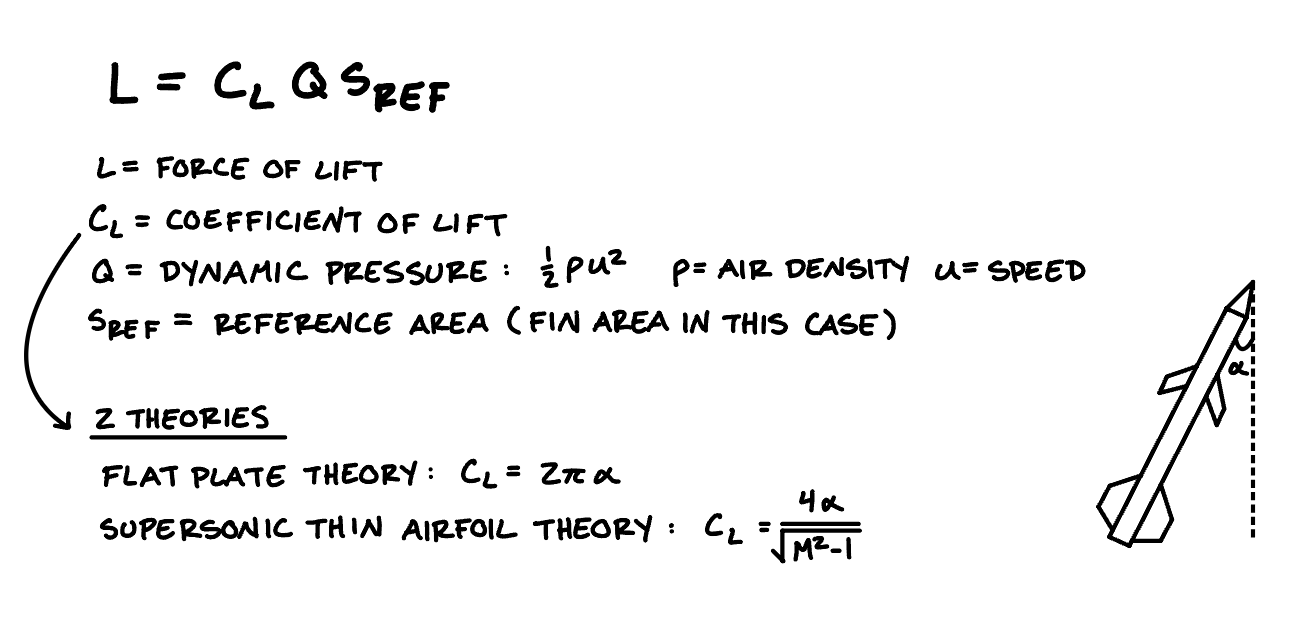 L = C_L Q S_REF
L = FORCE OF LIFT
C_L = COEFFICIENT OF LIFT
Q = DYNAMIC PRESSURE : ½ρu² ρ= AIR DENSITY u= SPEED
S_REF = REFERENCE AREA (FIN AREA IN THIS CASE)
α
2 THEORIES
FLAT PLATE THEORY: C_L = 2πα
SUPERSONIC THIN AIRFOIL THEORY : C_L = 4α/√(M²-1)